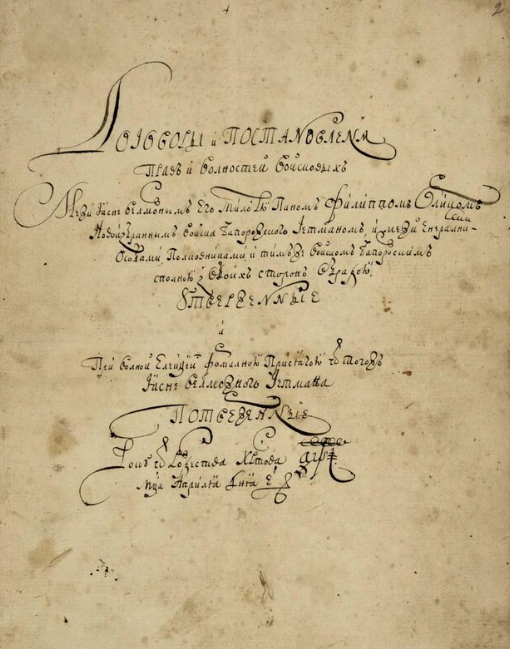 2
Договоры и постановленя
Правъ и волностей войсковыхъ
Межи Ясне велможнымъ Его милостю Паномъ Филиппомъ Орликомъ
Новоизбраннымъ войска Запорозского Гетманомъ, и межи Енералними
Особами Полковниками и тимъ же войскомъ Запорозскимъ
сполною з обоихъ сторонъ обрадою
Утверженные
и
При волной Елекции Формалною Присягою ѿ тогожъ
Ясне велможного Гетмана
Потверженные
Року ѿ Рождества Хр҃това ҂аѱ҃і
Мц҃а Априля дня е҃